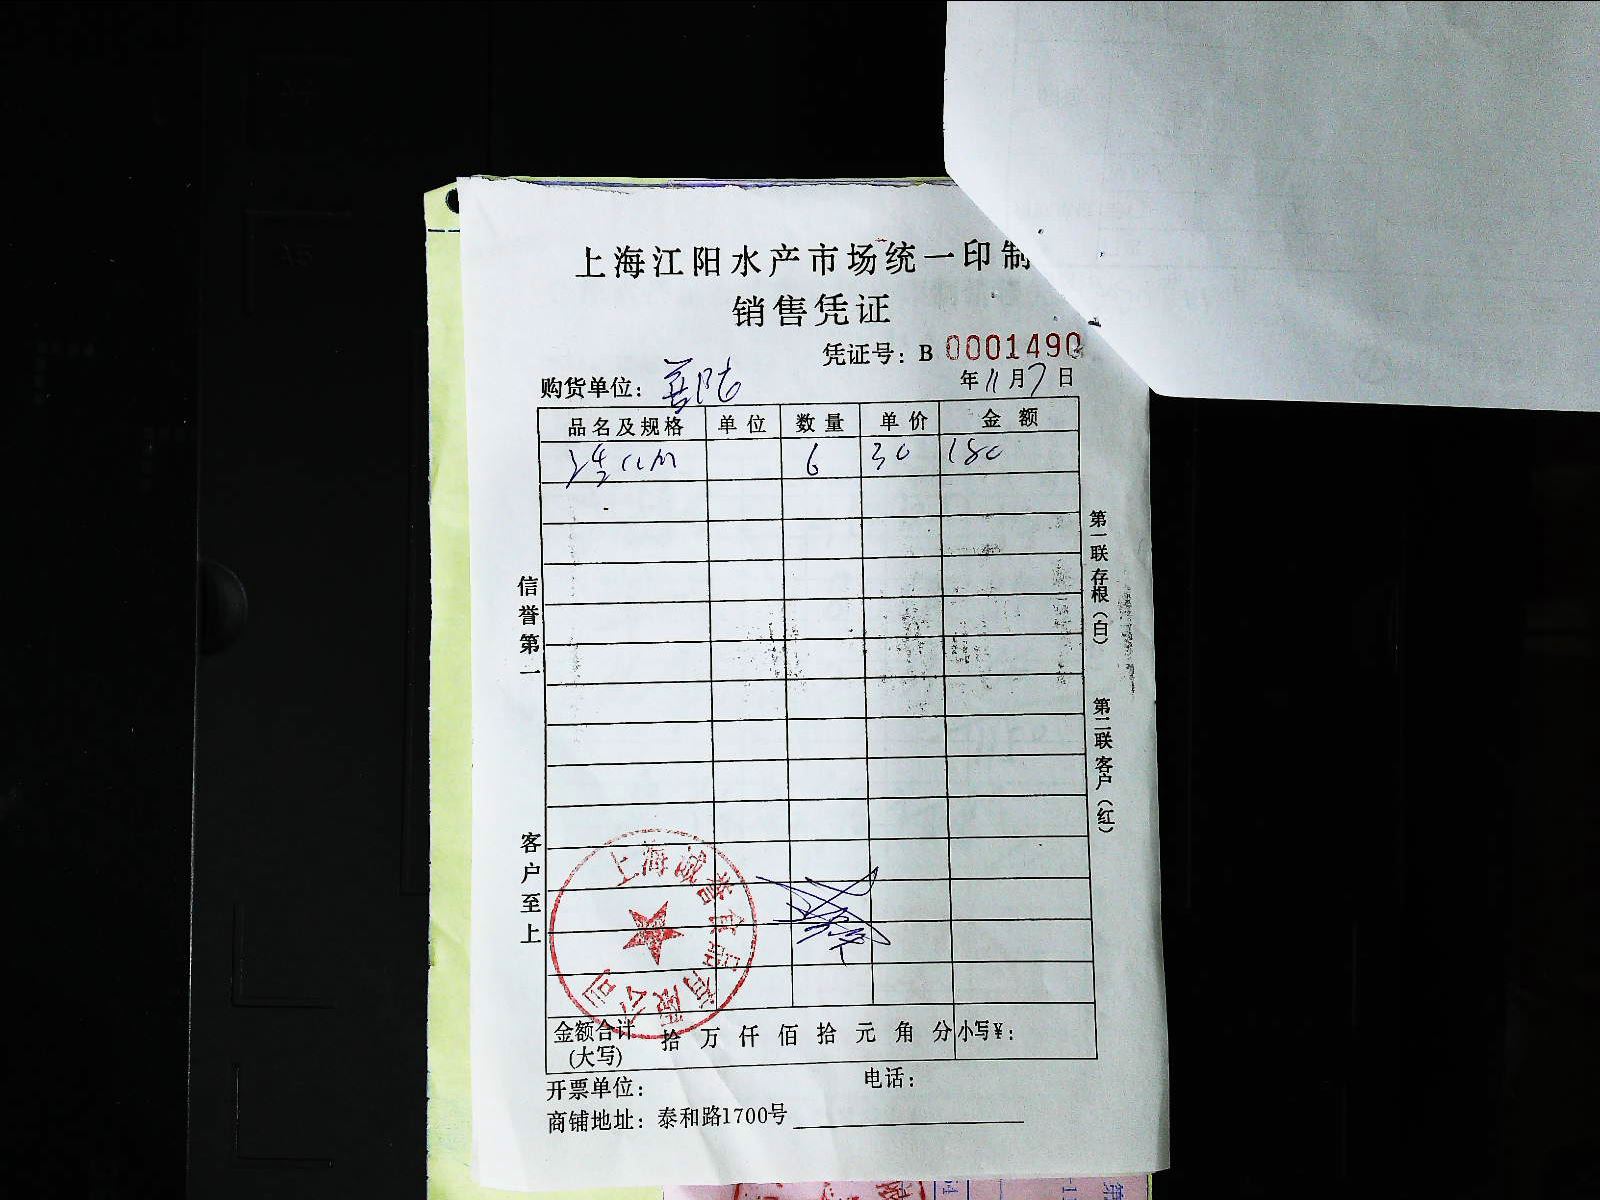 上海江阳水产市场统一印制
销售凭证
凭证号：B 0001490
购货单位：
年 11 月 7 日
品名及规格 单位 数量 单价 金额
6 30 180
第一联 存根（白）
第二联 客户（红）
信誉第一
客户至上
上海诚誉食品有限公司
金额合计(大写) 拾 万 仟 佰 拾 元 角 分 小写¥：
开票单位： 电话：
商铺地址：泰和路1700号